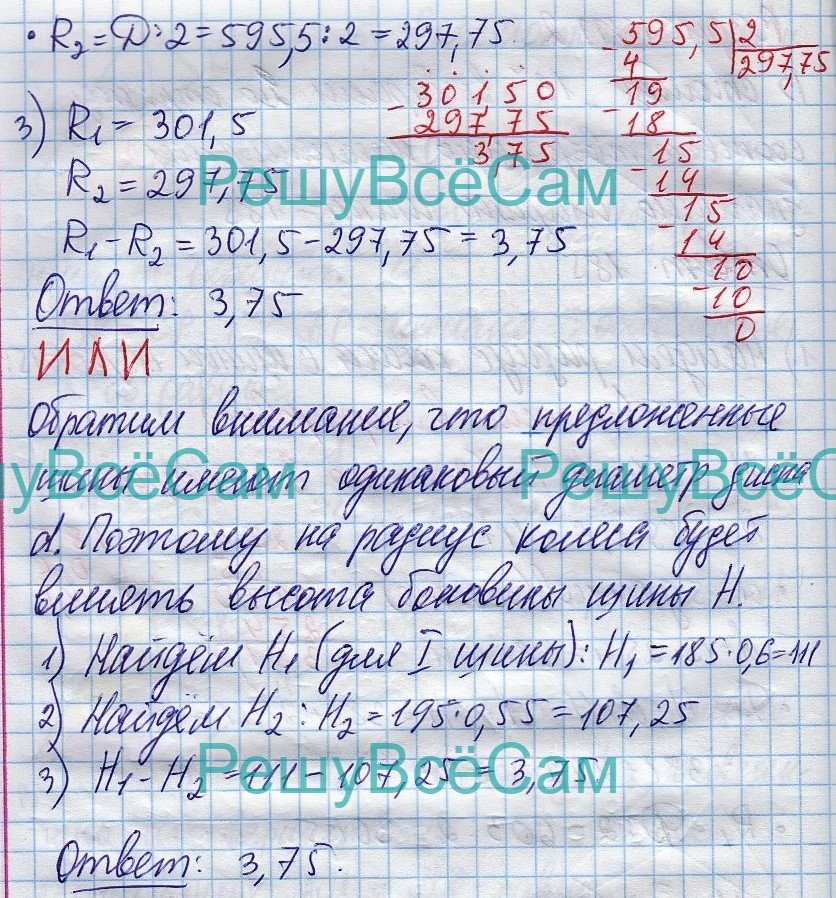 • R₂ = D : 2 = 595,5 : 2 = 297,75.
595,5 | 2
- 4 | 297,75
19
- 18
15
- 14
15
- 14
10
- 10
0
- 301,50
297 75
3,75
3) R₁ = 301,5
R₂ = 297,75
РешуВсёСам
R₁ - R₂ = 301,5 - 297,75 = 3,75
Ответ: 3,75
ИЛИ
Обратим внимание, что предложенные
шины имеют одинаковый диаметр диска
шуВсёСам РешуВсёС
d. Поэтому на радиус колеса будет
влиять высота боковины шины H.
1) Найдём H₁ (для I шины): H₁ = 185·0,6=111
2) Найдём H₂ : H₂ = 195·0,55 = 107,25
3) H₁ - H₂ = 111 - 107,25 = 3,75
РешуВсёСам
Ответ: 3,75.